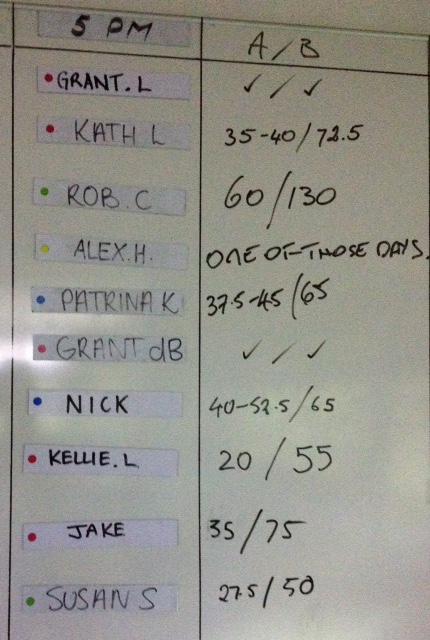 5 PM A/B
GRANT. L ✓ / ✓
KATH L 35-40/72.5
ROB. C 60/130
ALEX.H. ONE OF-THOSE DAYS.
PATRINA K 37.5-45/65
GRANT dB ✓ / ✓
NICK 40-52.5/65
KELLIE. L 20/55
JAKE 35/75
SUSAN S 27.5/50